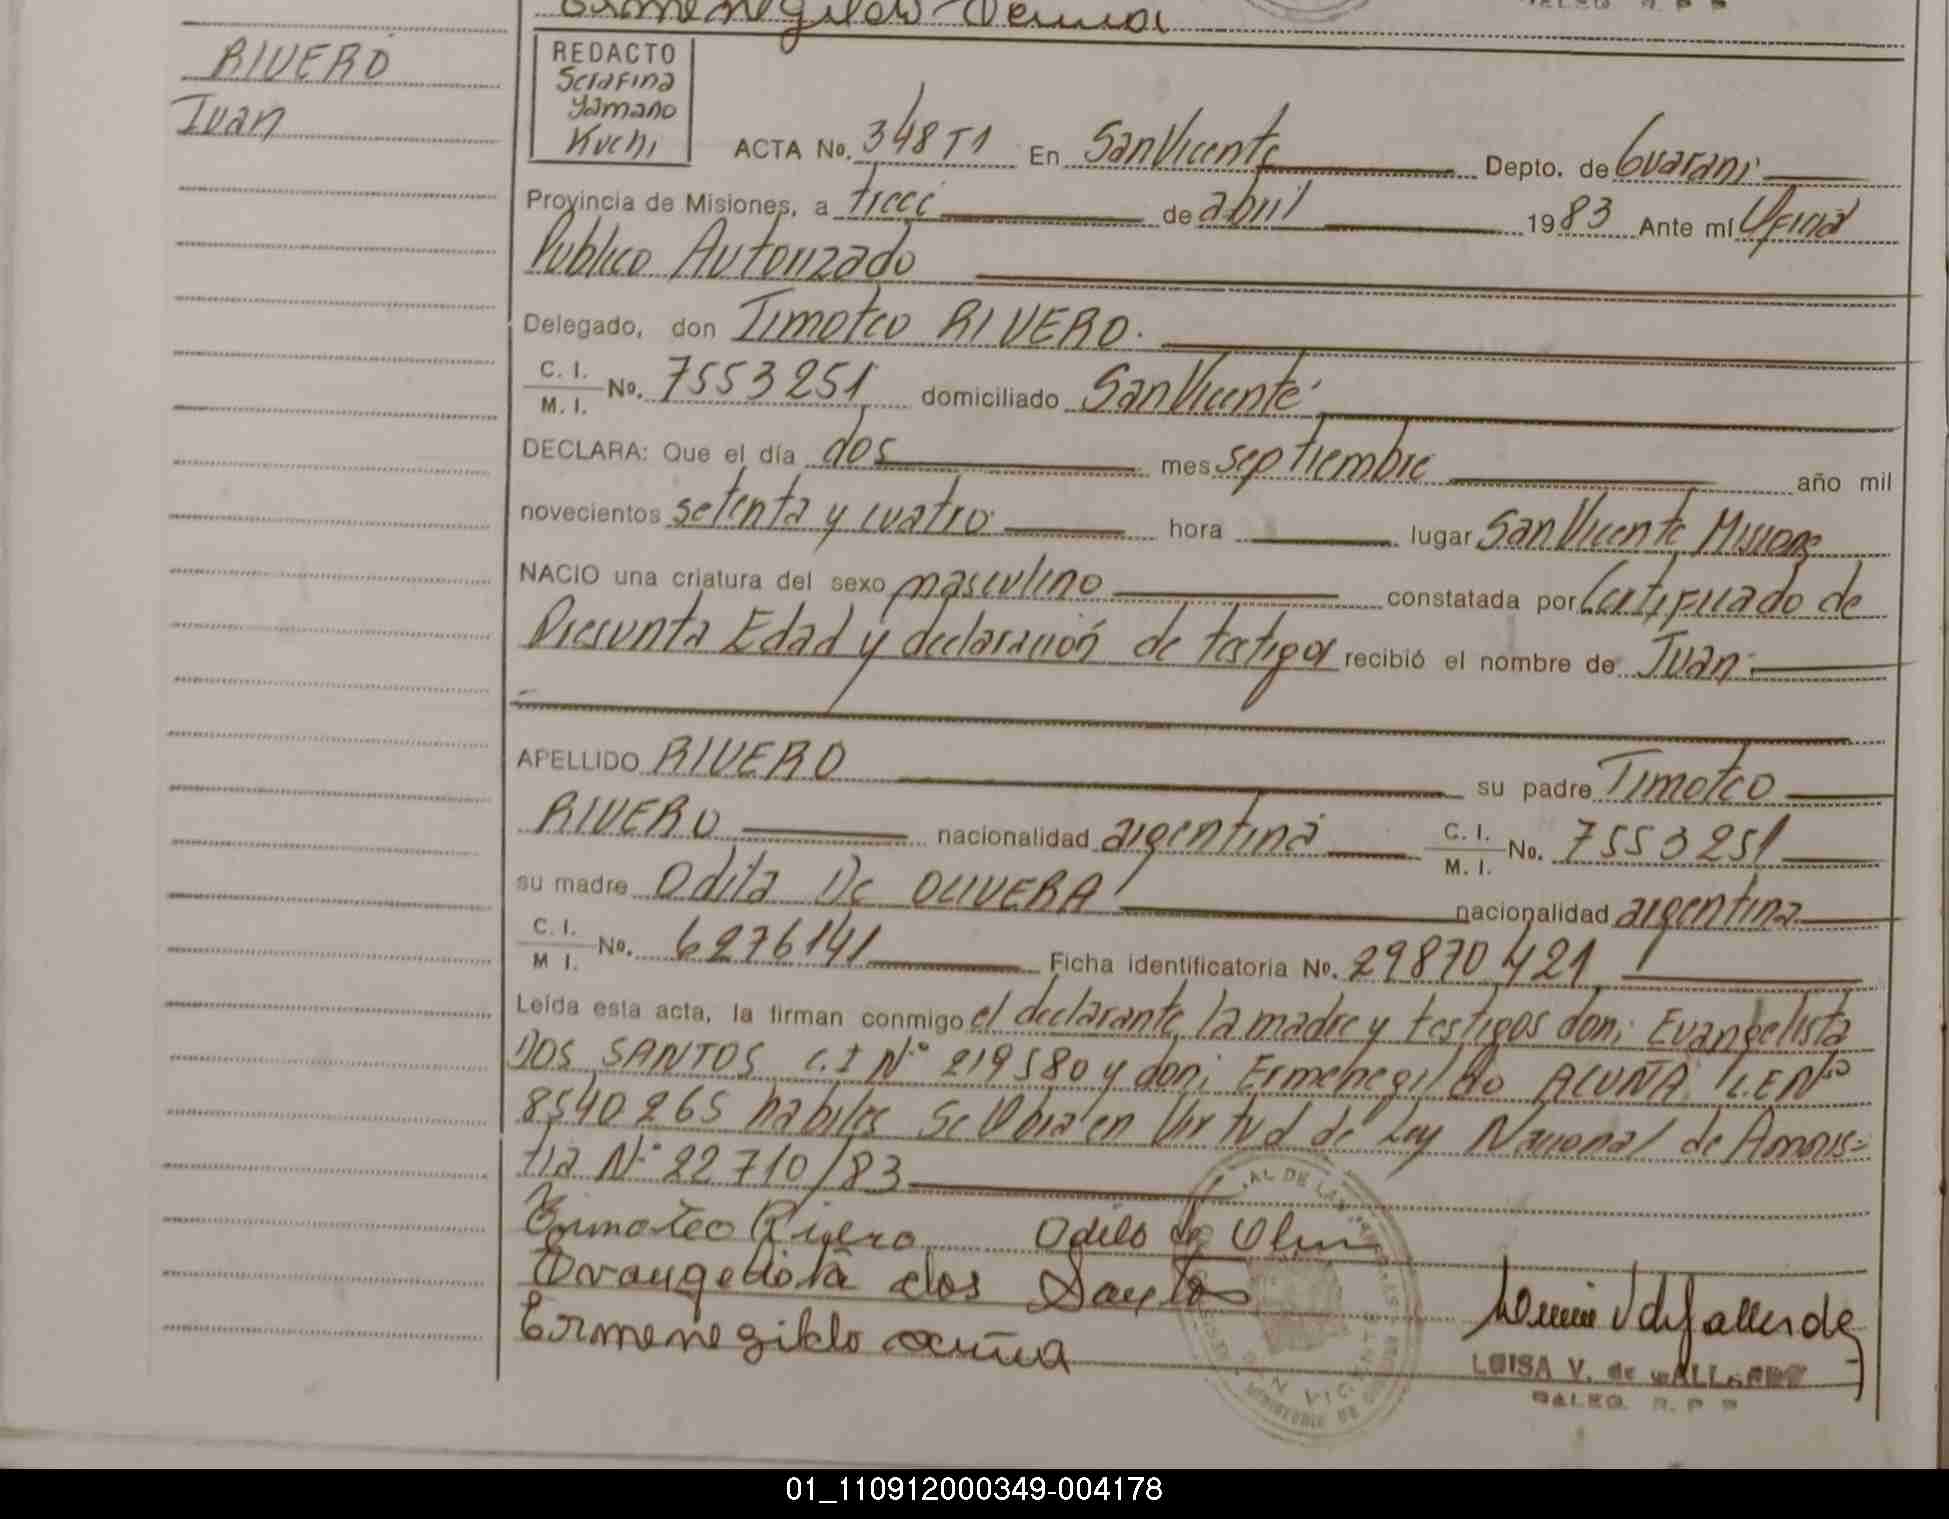 Ermenegildo Acuña
RIVERO
Juan
REDACTO
Serafina
Yamano
Kuchi
ACTA No. 348 T1 En San Vicente Depto. de Guarani
Provincia de Misiones, a trece de abril 1983 Ante mí Oficial
Público Autorizado
Delegado, don Timoteo RIVERO.
C. I. / M. I. No. 7553251 domiciliado San Vicente
DECLARA: Que el día dos mes septiembre año mil
novecientos setenta y cuatro hora lugar San Vicente Misiones
NACIO una criatura del sexo masculino constatada por Certificado de
Presunta Edad y declaración de testigos recibió el nombre de Juan.
APELLIDO RIVERO su padre Timoteo
RIVERO nacionalidad argentina C. I. / M. I. No. 7553251
su madre Odila De OLIVERA nacionalidad argentina
C. I. / M I. No. 6276141 Ficha identificatoria No. 29870421
Leída esta acta, la firman conmigo el declarante, la madre y testigos don; Evangelista
DOS SANTOS C.I Nº 219580 y don; Ermenegildo ACUÑA L.E Nº
8540265 hábiles Se labra en Virtud de Ley Nacional de Amnis=
tia Nº 22710/83
Timoteo Rivero Odila de
Evangelista dos Santos
Ermenegildo acuña
LUISA V. de GALLARDO
DALEG. R. P. P
SAN VICENTE
01_110912000349-004178